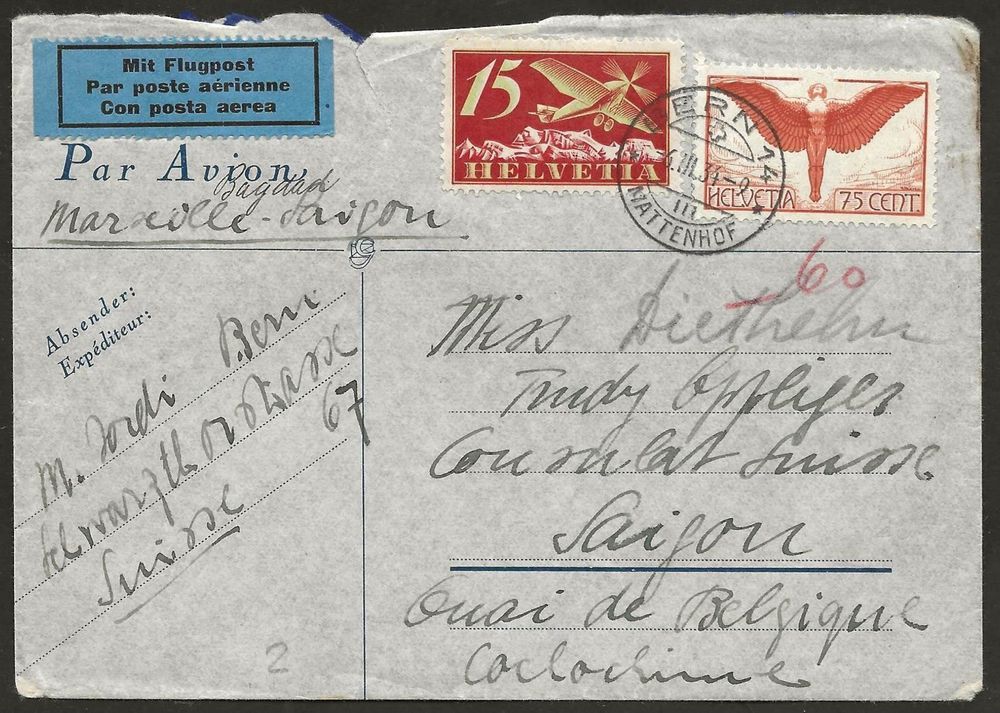 Mit Flugpost
Par poste aérienne
Con posta aerea
Par Avion
Bagdad
Marseille-Saigon
15
HELVETIA
HELVETIA 75 CENT
BERN 14
III.34
MATTENHOF
60
Absender:
Expéditeur:
M. Jordi Bern
Schwarzthorstrasse
67
Suisse
2
Miss Diethelm
Trudy Oppliger
Consulat Suisse
Saigon
Quai de Belgique
Cochochine